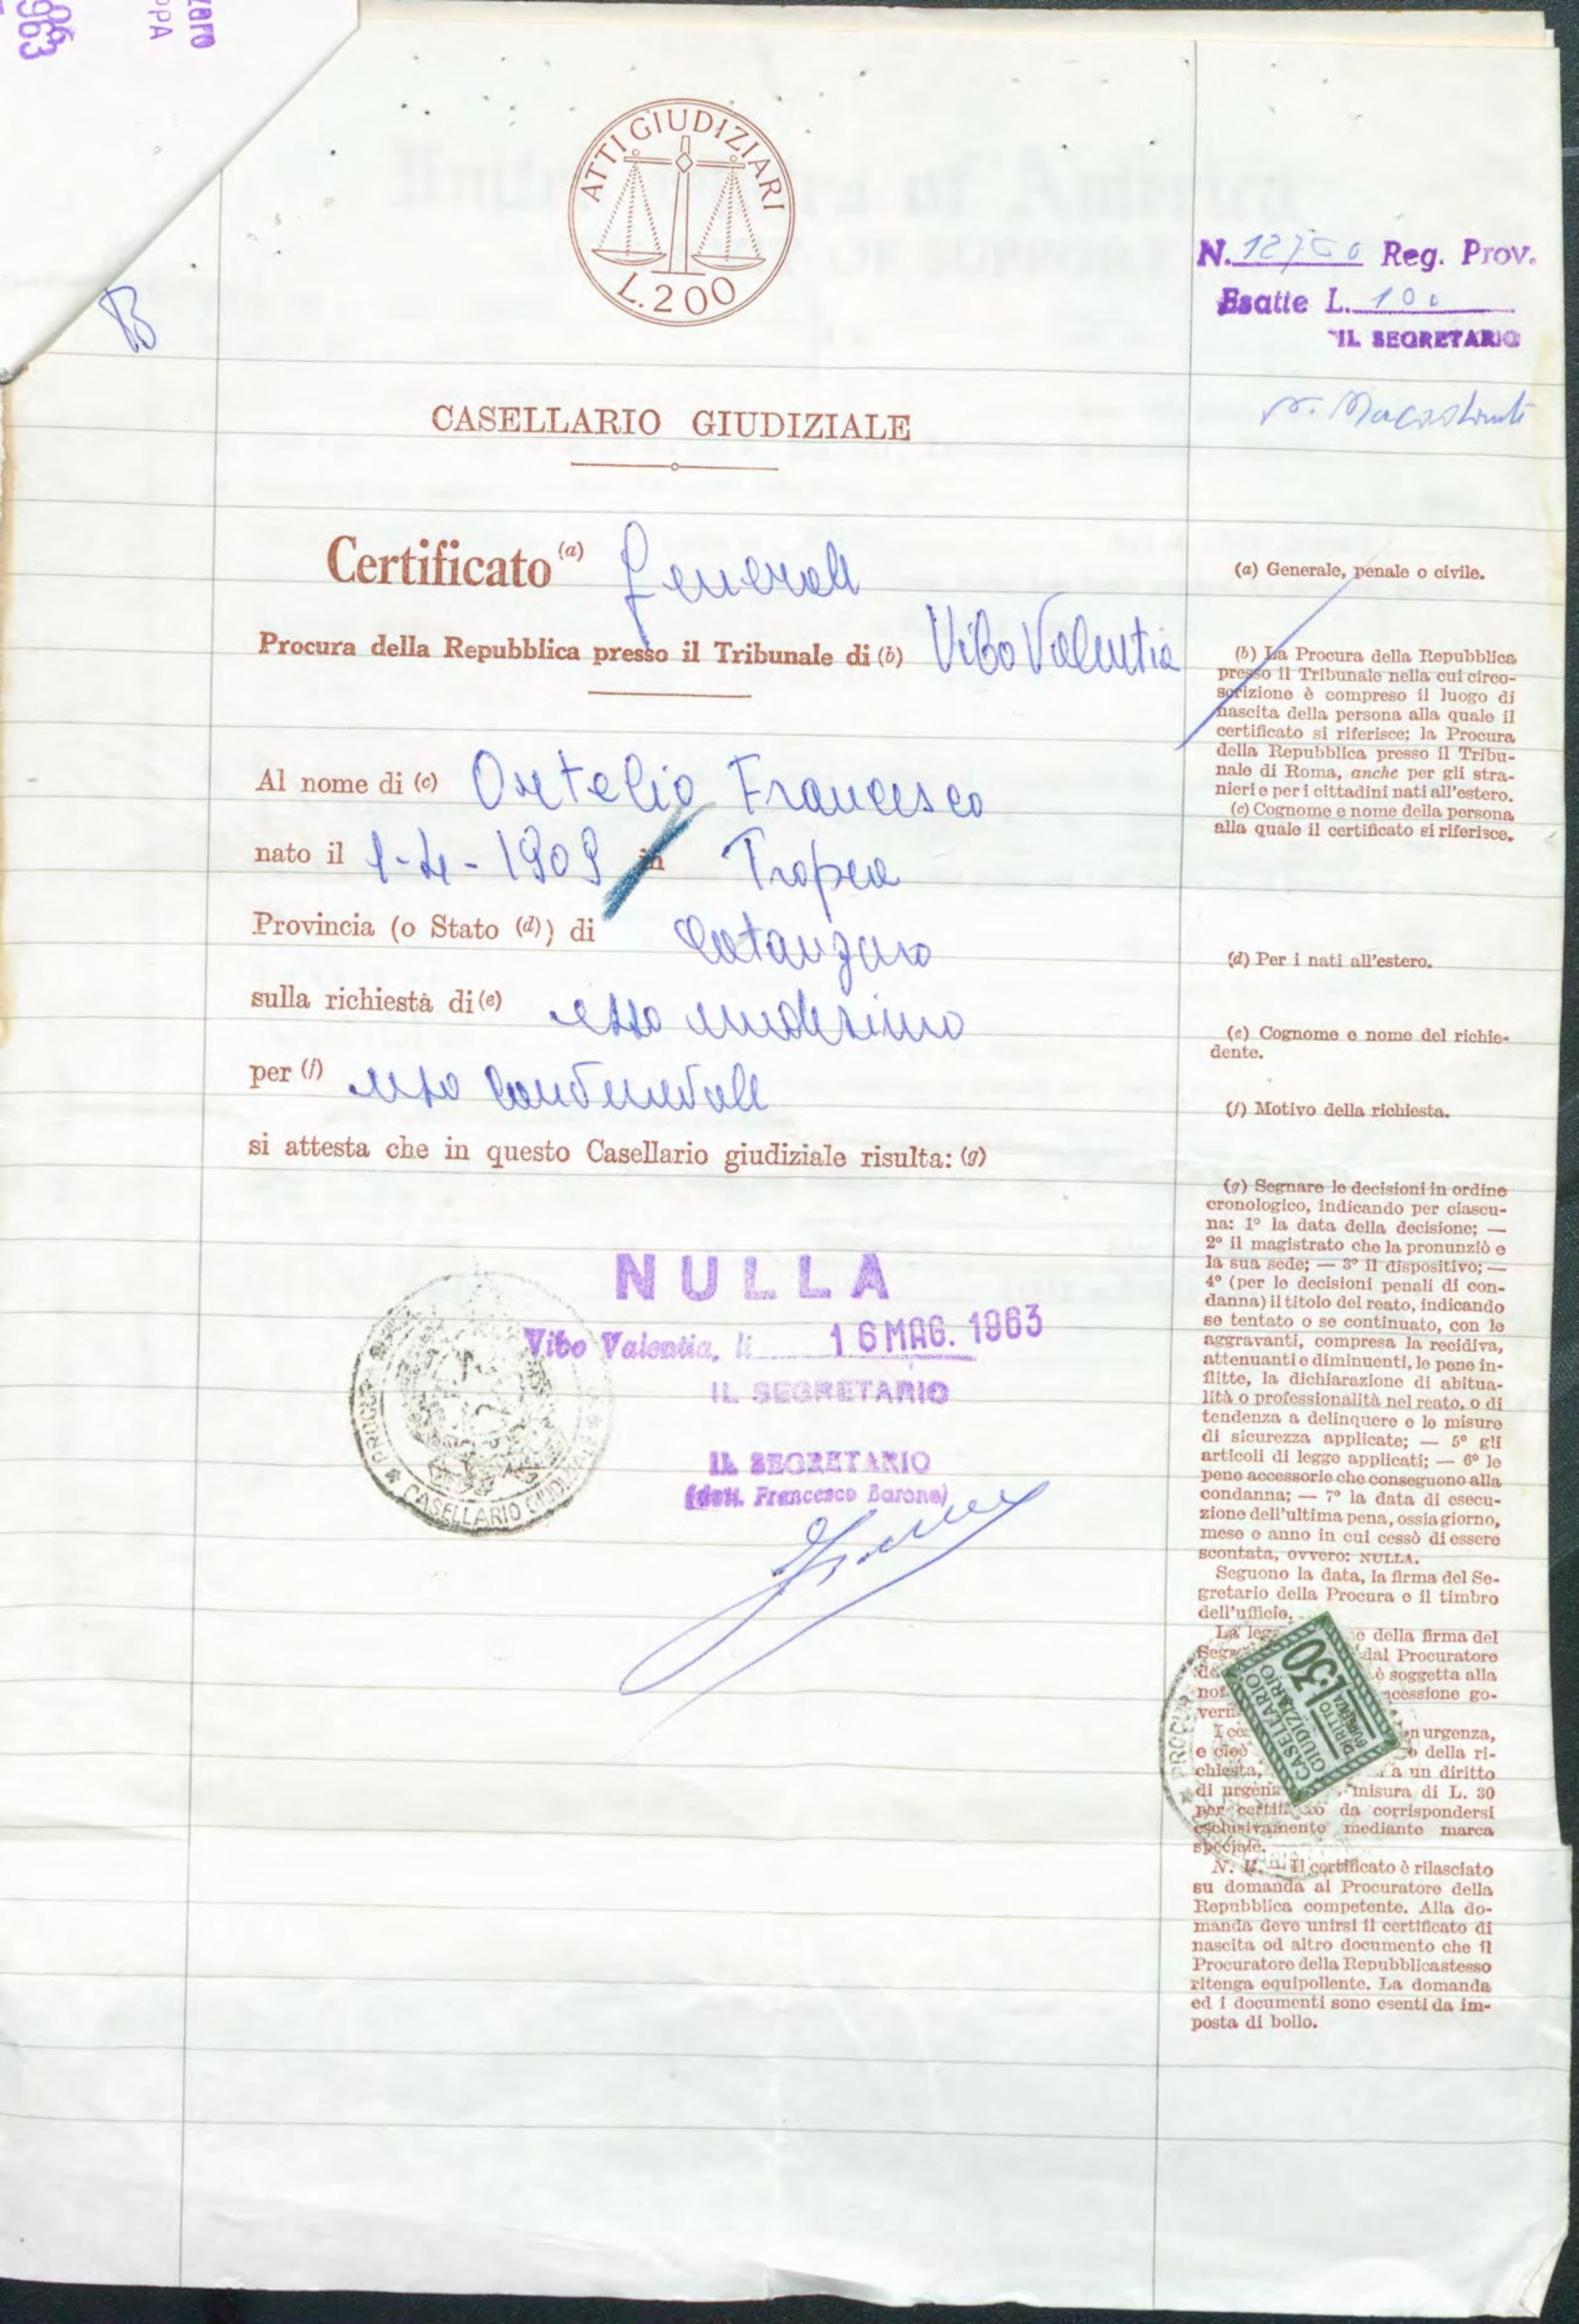 ATTI GIUDIZIARI
L.200
N. 12750 Reg. Prov.
Esatte L. 100
IL SEGRETARIO
B
CASELLARIO GIUDIZIALE
Certificato (a) Generale
Procura della Repubblica presso il Tribunale di (b) Vibo Valentia
Al nome di (c) Ortelio Francesco
nato il 1-4-1909 in Tropea
Provincia (o Stato (d)) di Catanzaro
sulla richiesta di (e) esso medesimo
per (f) uso
si attesta che in questo Casellario giudiziale risulta: (g)
NULLA
Vibo Valentia, li 16 MAG. 1963
IL SEGRETARIO
IL SEGRETARIO
(dott. Francesco Barone)
CASELLARIO GIUDIZIALE
(a) Generale, penale o civile.
(b) La Procura della Repubblica
presso il Tribunale nella cui circo-
scrizione è compreso il luogo di
nascita della persona alla quale il
certificato si riferisce; la Procura
della Repubblica presso il Tribu-
nale di Roma, anche per gli stra-
nieri e per i cittadini nati all'estero.
(c) Cognome e nome della persona
alla quale il certificato si riferisce.
(d) Per i nati all'estero.
(e) Cognome e nome del richie-
dente.
(f) Motivo della richiesta.
(g) Segnare le decisioni in ordine
cronologico, indicando per ciascu-
na: 1° la data della decisione; —
2° il magistrato che la pronunziò e
la sua sede; — 3° il dispositivo; —
4° (per le decisioni penali di con-
danna) il titolo del reato, indicando
se tentato o se continuato, con le
aggravanti, compresa la recidiva,
attenuanti e diminuenti, le pene in-
flitte, la dichiarazione di abitua-
lità o professionalità nel reato, o di
tendenza a delinquere e le misure
di sicurezza applicate; — 5° gli
articoli di legge applicati; — 6° le
pene accessorie che conseguono alla
condanna; — 7° la data di esecu-
zione dell'ultima pena, ossia giorno,
mese e anno in cui cessò di essere
scontata, ovvero: NULLA.
Seguono la data, la firma del Se-
gretario della Procura e il timbro
dell'ufficio.
La della firma del
dal Procuratore
è soggetta alla
go-
I urgenza,
e cioè della ri-
chiesta, a un diritto
di misura di L. 30
per da corrispondersi
esclusivamente mediante marca
speciale.
CASELLARIO
GIUDIZIARIO
DIRITTO
D'URGENZA
L.30
N. B. — Il certificato è rilasciato
su domanda al Procuratore della
Repubblica competente. Alla do-
manda deve unirsi il certificato di
nascita od altro documento che il
Procuratore della Repubblica stesso
ritenga equipollente. La domanda
ed i documenti sono esenti da im-
posta di bollo.